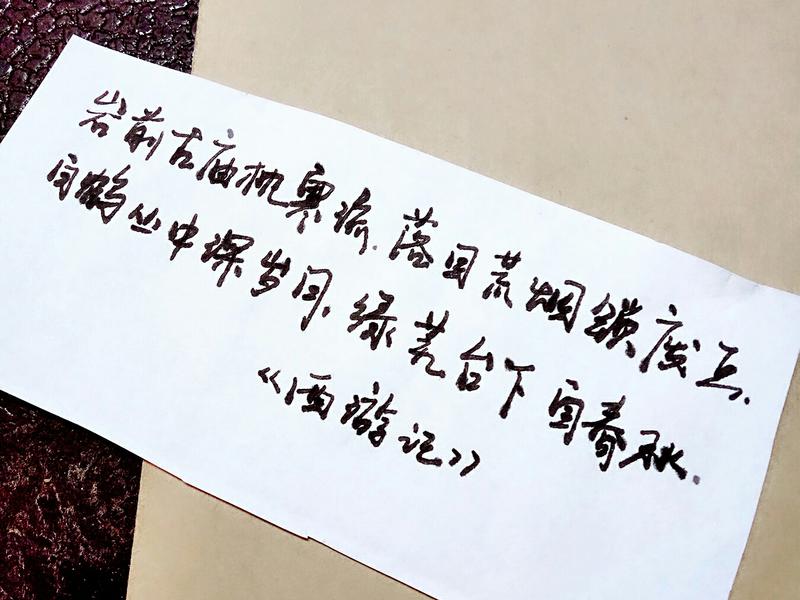 岩前古庙枕寒流.落目荒烟锁废丘.
白鹤丛中深岁月,绿芜台下自春秋.
《西游记》